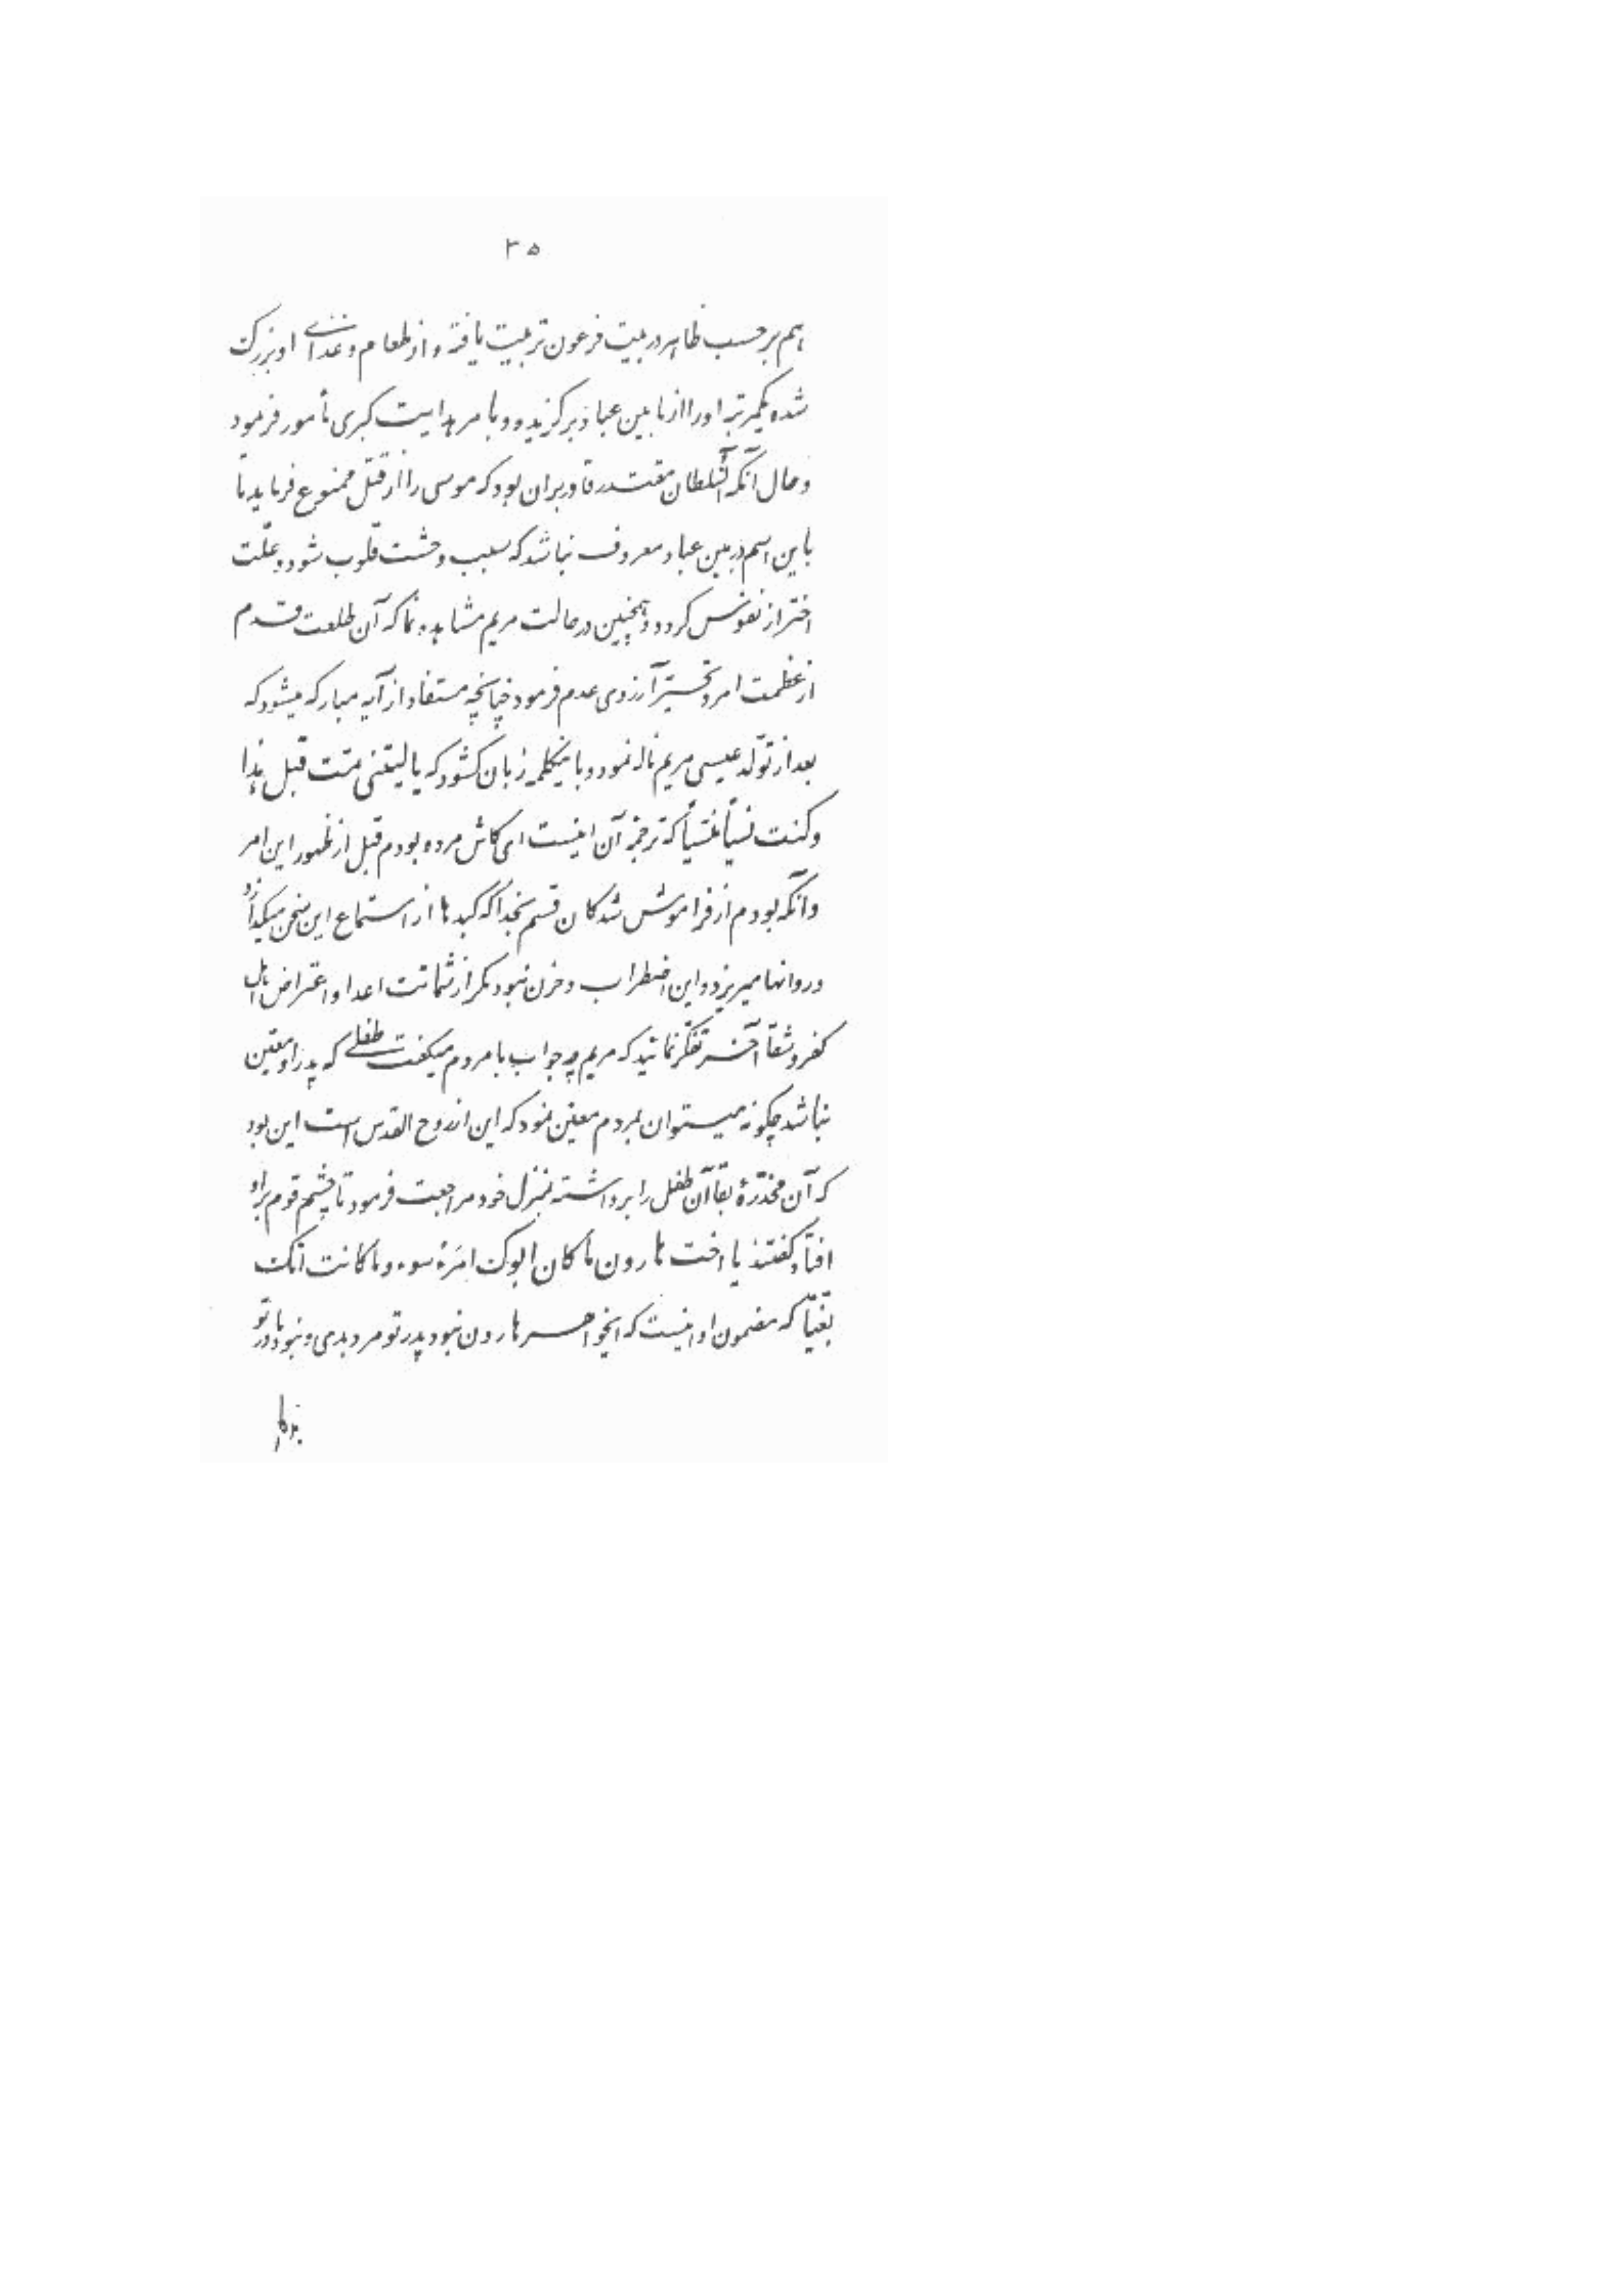 ۳۵
هم بر حسب ظاهر در بیت فرعون تربیت یافته و از طعام و غذای او بزرگ
شده یکمرتبه او را از مابین عباد برگزیده و بامر هدایت کبری مأمور فرمود
و حال آنکه آن سلطان مقتدر قادر بر آن بود که موسی را از قتل ممنوع فرماید تا
باین اسم در بین عباد معروف نباشد که سبب وحشت قلوب شود و علّت
احتراز نفوس گردد و همچنین در حالت مریم مشاهده نما که آن طلعت قدم
از عظمت امر و تحیّر آرزوی عدم فرمود چنانچه مستفاد از آیه مبارکه میشود که
بعد از تولّد عیسی مریم ناله نمود و باینکلمه زبان گشود که یا لیتنی متّ قبل هذا
و کنت نسیاً منسیّاً که ترجمهٔ آن اینست ای کاش مرده بودم قبل از ظهور این امر
و آنکه بودم از فراموش شدگان قسم بخدا که کبدها از استماع این سخن میگدازد
و روانها میریزد و این اضطراب و حزن نبود مگر از شماتت اعدا و اعتراض اهل
کفر و شقا آخر تفکّر نمائید که مریم چه جواب با مردم میگفت طفلی که پدر او معیّن
نباشد چگونه میتوان بمردم معیّن نمود که این از روح القدس است این بود
که آن مخدّرهٔ بقا آن طفل را برداشته بمنزل خود مراجعت فرمود تا چشم قوم بر او
افتاد گفتند یا اخت هارون ما کان ابوک امرءَ سوء و ما کانت امّک
بغیّاً که مضمون او اینست که ایخواهر هارون نبود پدر تو مرد بدی و نبود مادر تو
بدکار